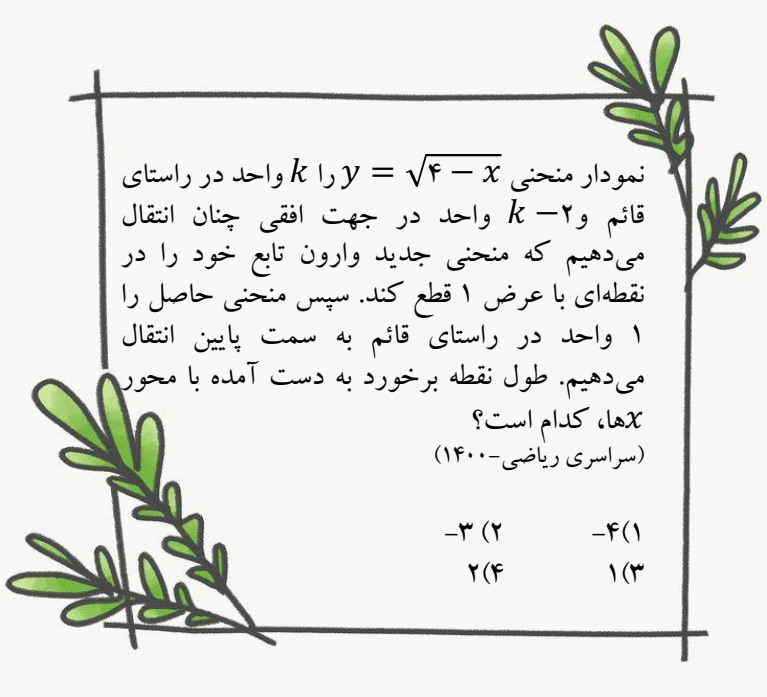 نمودار منحنی y = √۴ − x را k واحد در راستای
قائم و۲− k واحد در جهت افقی چنان انتقال
می‌دهیم که منحنی جدید وارون تابع خود را در
نقطه‌ای با عرض ۱ قطع کند. سپس منحنی حاصل را
۱ واحد در راستای قائم به سمت پایین انتقال
می‌دهیم. طول نقطه برخورد به دست آمده با محور
xها، کدام است؟
(سراسری ریاضی-۱۴۰۰)
۱)۴− ۲) ۳−
۳)۱ ۴)۲